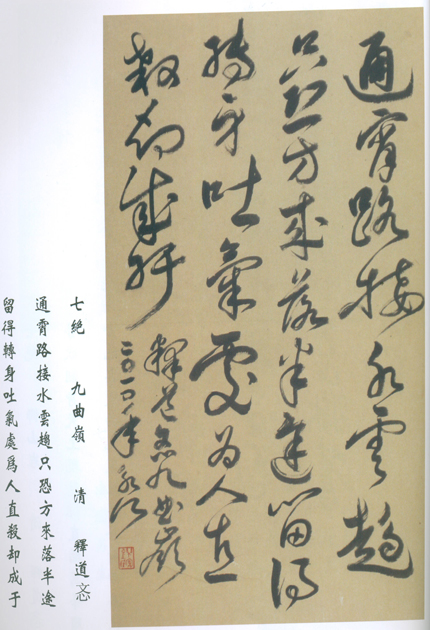 通霄路接水雲趨
只恐方來落半途留得
轉身吐氣處為人直
殺却成于
釋道忞九曲嶺
二〇一〇年
七絕 九曲嶺 清 釋道忞
通霄路接水雲趨只恐方來落半途
留得轉身吐氣處爲人直殺却成于